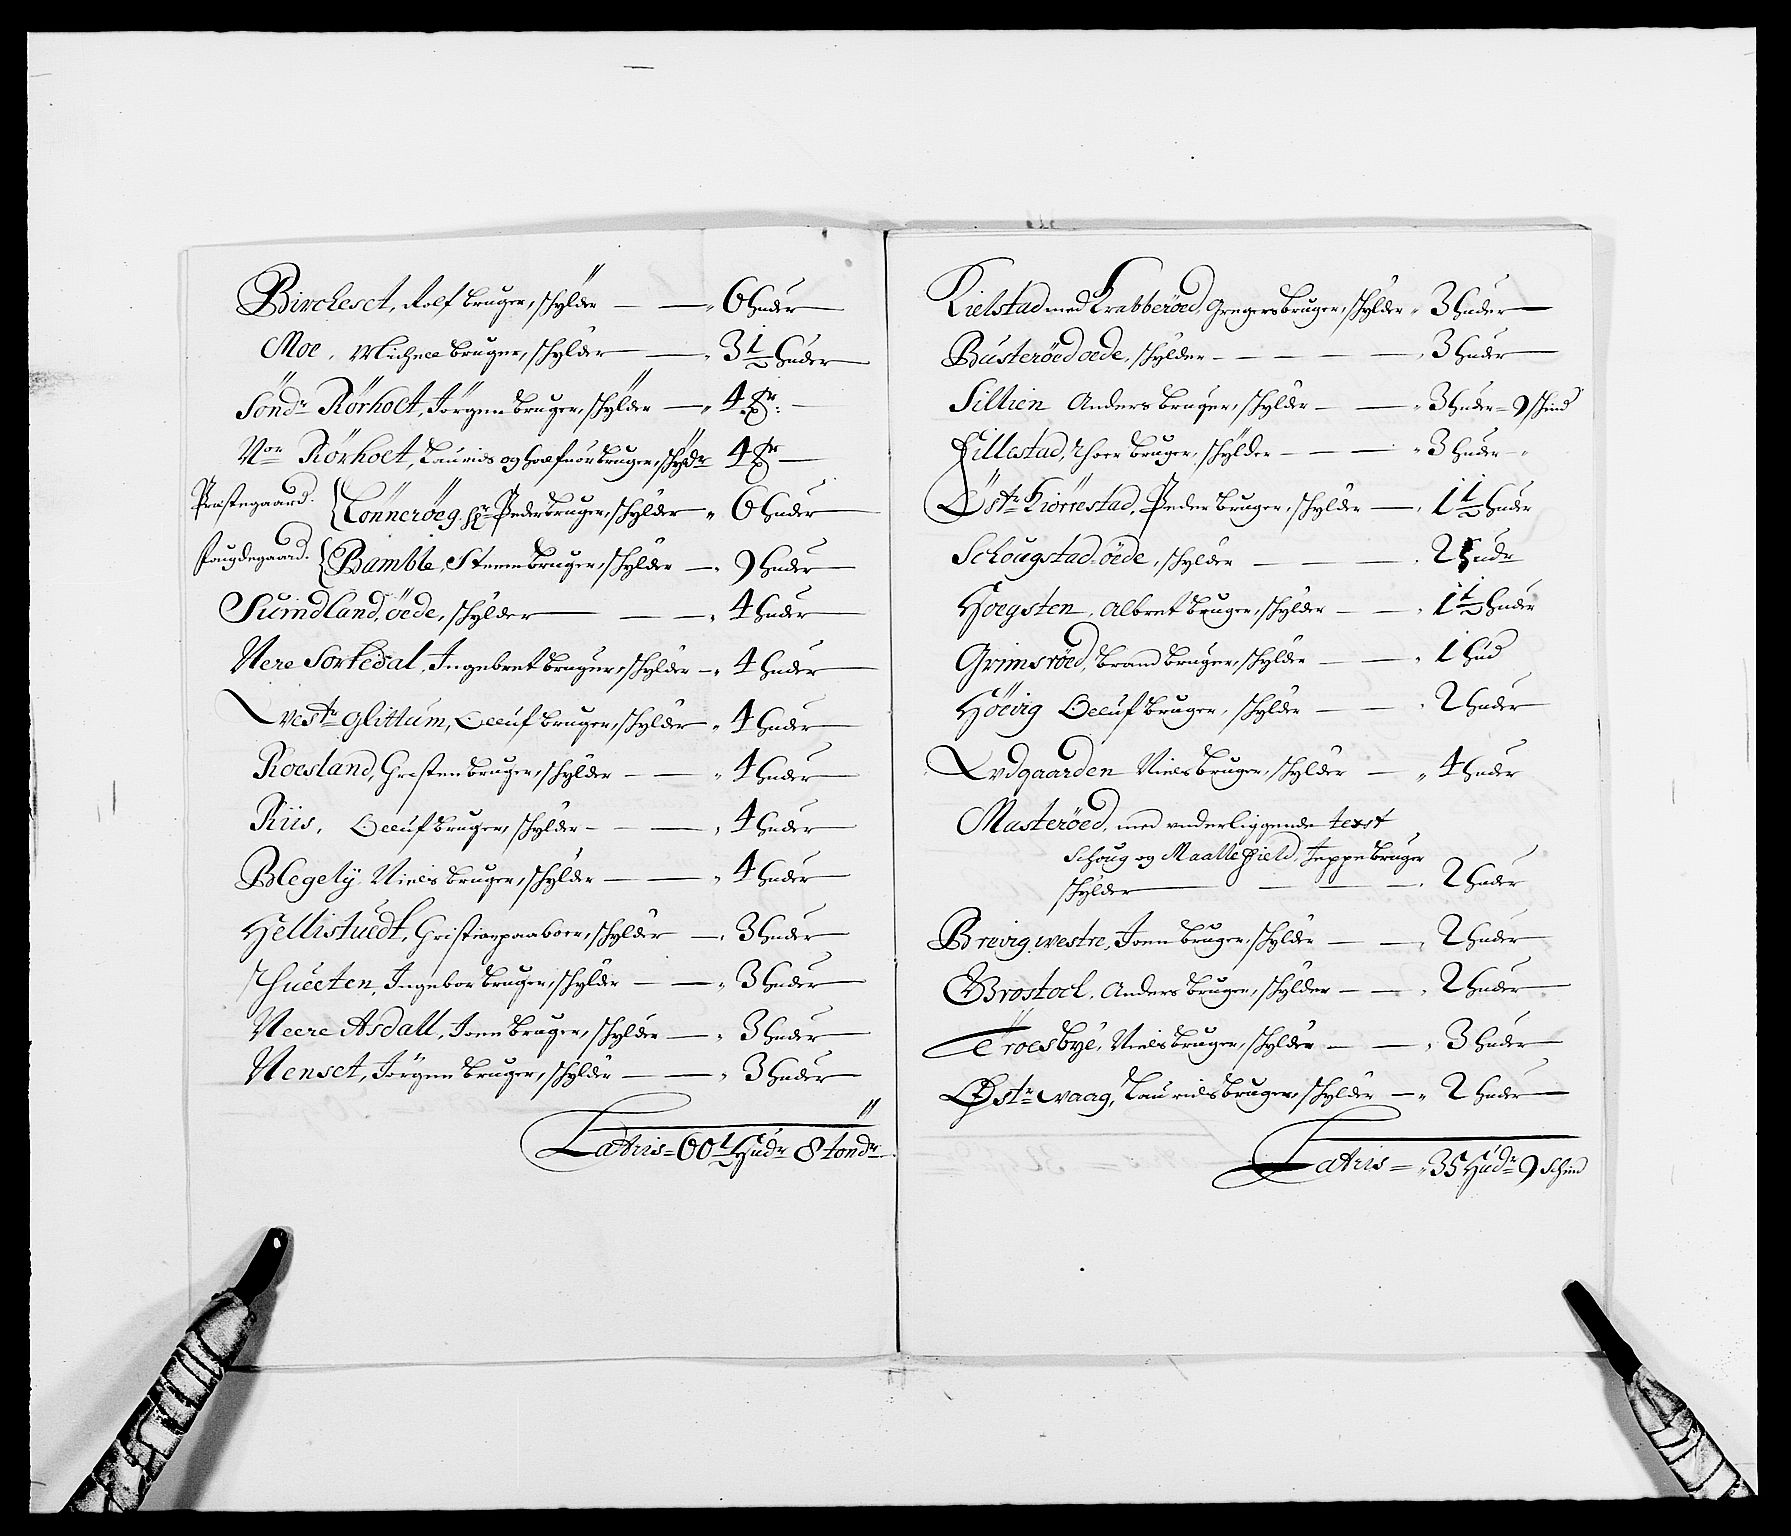 Bircheset, Rolf bruger, schylder — — „ 6 huder
Moe, Michael bruger, schylder — — „ 3½ huder
Söndr Rörholt, Jörgen bruger, schylder — „ 4
Nor Rörholt, Laurids og bruger, schyldr 4
Præstegaard. Tönneröeg. hr Peder bruger, schylder „ 6 huder
Bamble, Steen bruger, schylder — „ 9 huder
Sundland, öede, schylder — — „ 4 huder
Nere Sortedal, Ingebret bruger, schylder — „ 4 huder
Vestr Glittum, Oeluf bruger, schylder „ 4 huder
Roesland, Christen bruger, schylder — — „ 4 huder
Riis, Oeluf bruger, schylder — — „ 4 huder
Blegely, Niels bruger, schylder — — „ 4 huder
Hellistuedt, Christian paaboer, schylder — „ 3 huder
Ingebor bruger, schylder — — „ 3 huder
Neere Asdall, Joen bruger, schylder — „ 3 huder
Nenset, Jörgen bruger, schylder — — „ 3 huder
Lateris = 60½ Hudr 8 tondr
Kielstad med Krabberöed, Gregers bruger, schylder „ 3 huder
Busteröed öede, schylder — — — — „ 3 huder
Siltien Anders bruger, schylder — — „ 3 huder = 9 skind
Fillestad, Thoer bruger, schylder — — — „ 3 huder „
Östr Kiörrestad, Peder bruger, schylder — „ 1½ huder
Schougstad öede, schylder — — — „ 2 hudr
Hoegsten, Albret bruger, schylder — — „ 1½ huder
Grimsröed, Brand bruger, schylder — — „ 1 hud
Höevig Oeluf bruger, schylder — — „ 2 huder
Udgaarden Niels bruger, schylder — „ 4 huder
Masteröed, med underliggende text
Schoug og Maallefield, Jeppe bruger
schylder — — — „ 2 huder
Brevig westre, Joen bruger, schylder — — „ 2 huder
Brostoel, Anders bruger, schylder — — „ 2 huder
Troesbye, Niels bruger, schylder — — „ 3 huder
Østr waag, Laurids bruger, schylder — „ 2 huder
Lateris = „ 35 Hudr 9 Schind